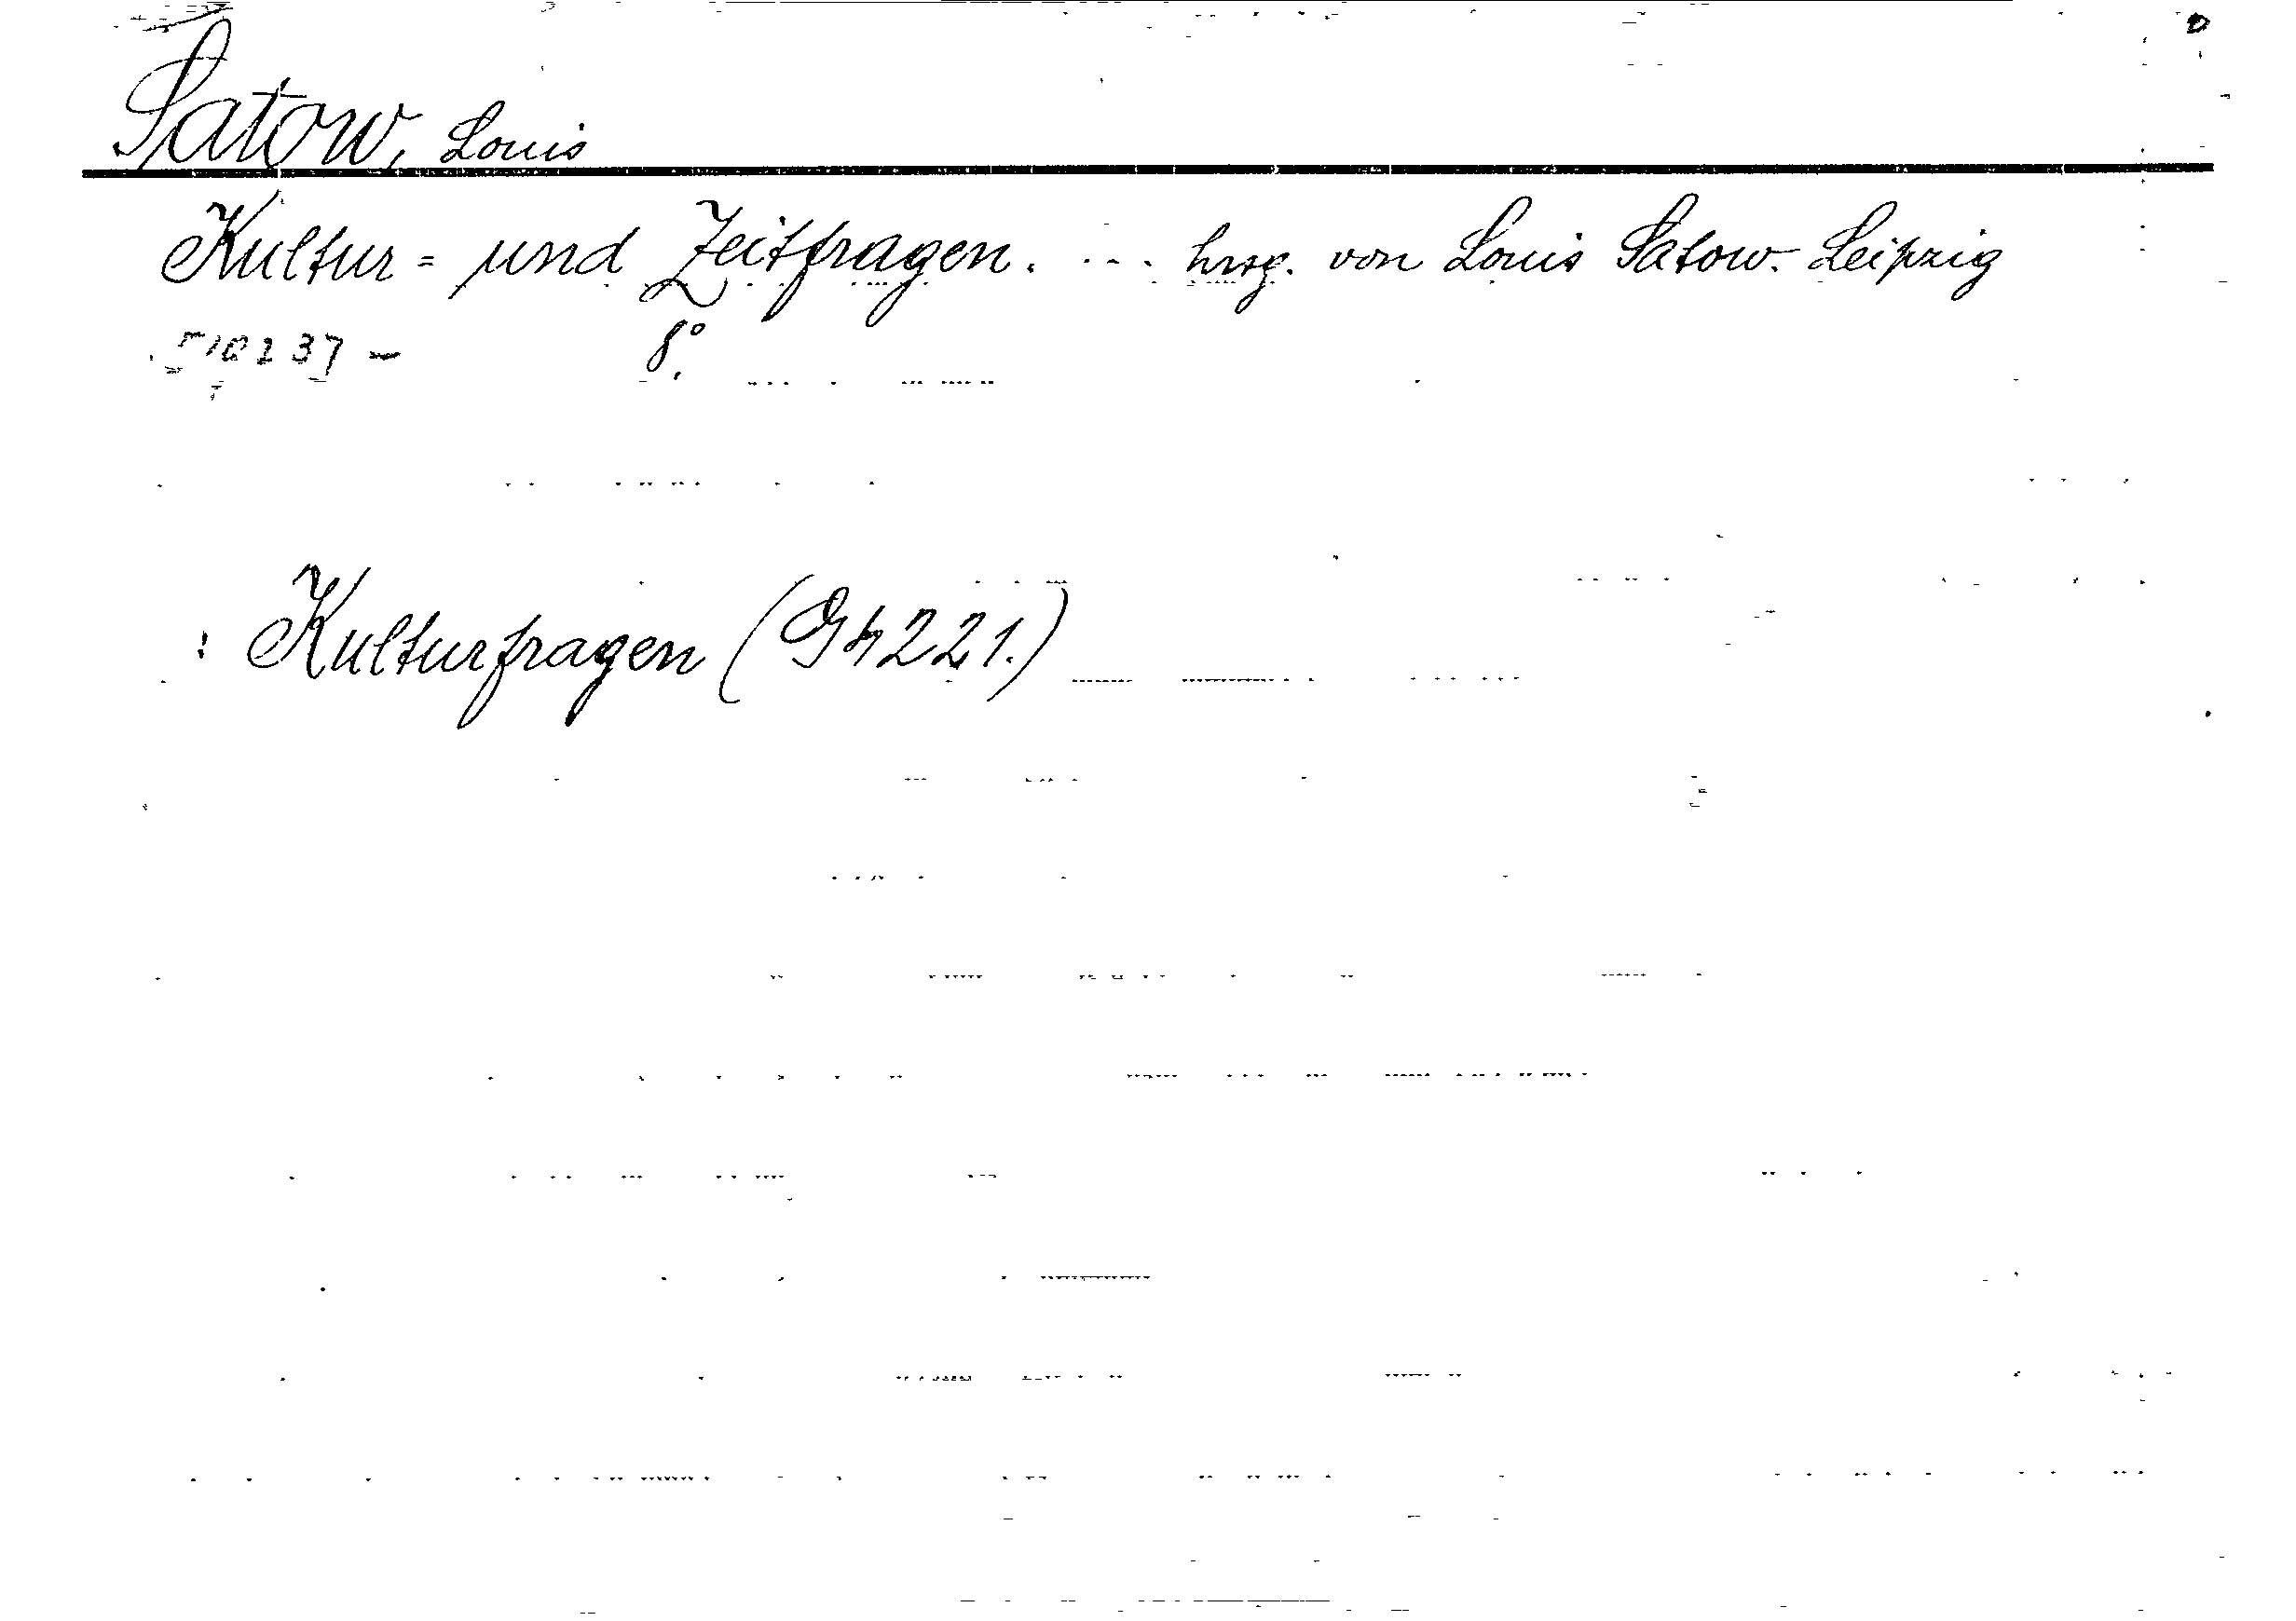 Satow, Louis
Kultur= und Zeitfragen. ... hrsg. von Louis Satow. Leipzig
8°.
: Kulturfragen (G4221.)